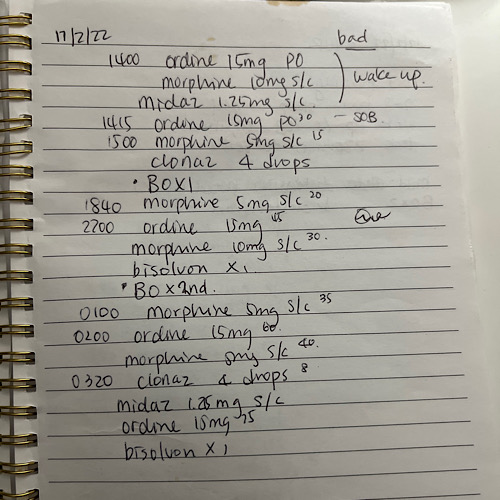 17/2/22 bad
1400 ordine 15mg PO
morphine 10mg s/c wake up.
midaz 1.25mg s/c.
1415 ordine 15mg PO 30 - SOB.
1500 morphine 5mg s/c 15
clonaz 4 drops
• BOX1
1840 morphine 5mg s/c 20
2200 ordine 15mg 45
morphine 10mg s/c 30.
bisolvon x 1
• BO x 2nd.
0100 morphine 5mg s/c 35
0200 ordine 15mg 60.
morphine 5mg s/c 40.
0320 clonaz 4 drops 8
midaz 1.25mg s/c
ordine 15mg 75
bisolvon x 1